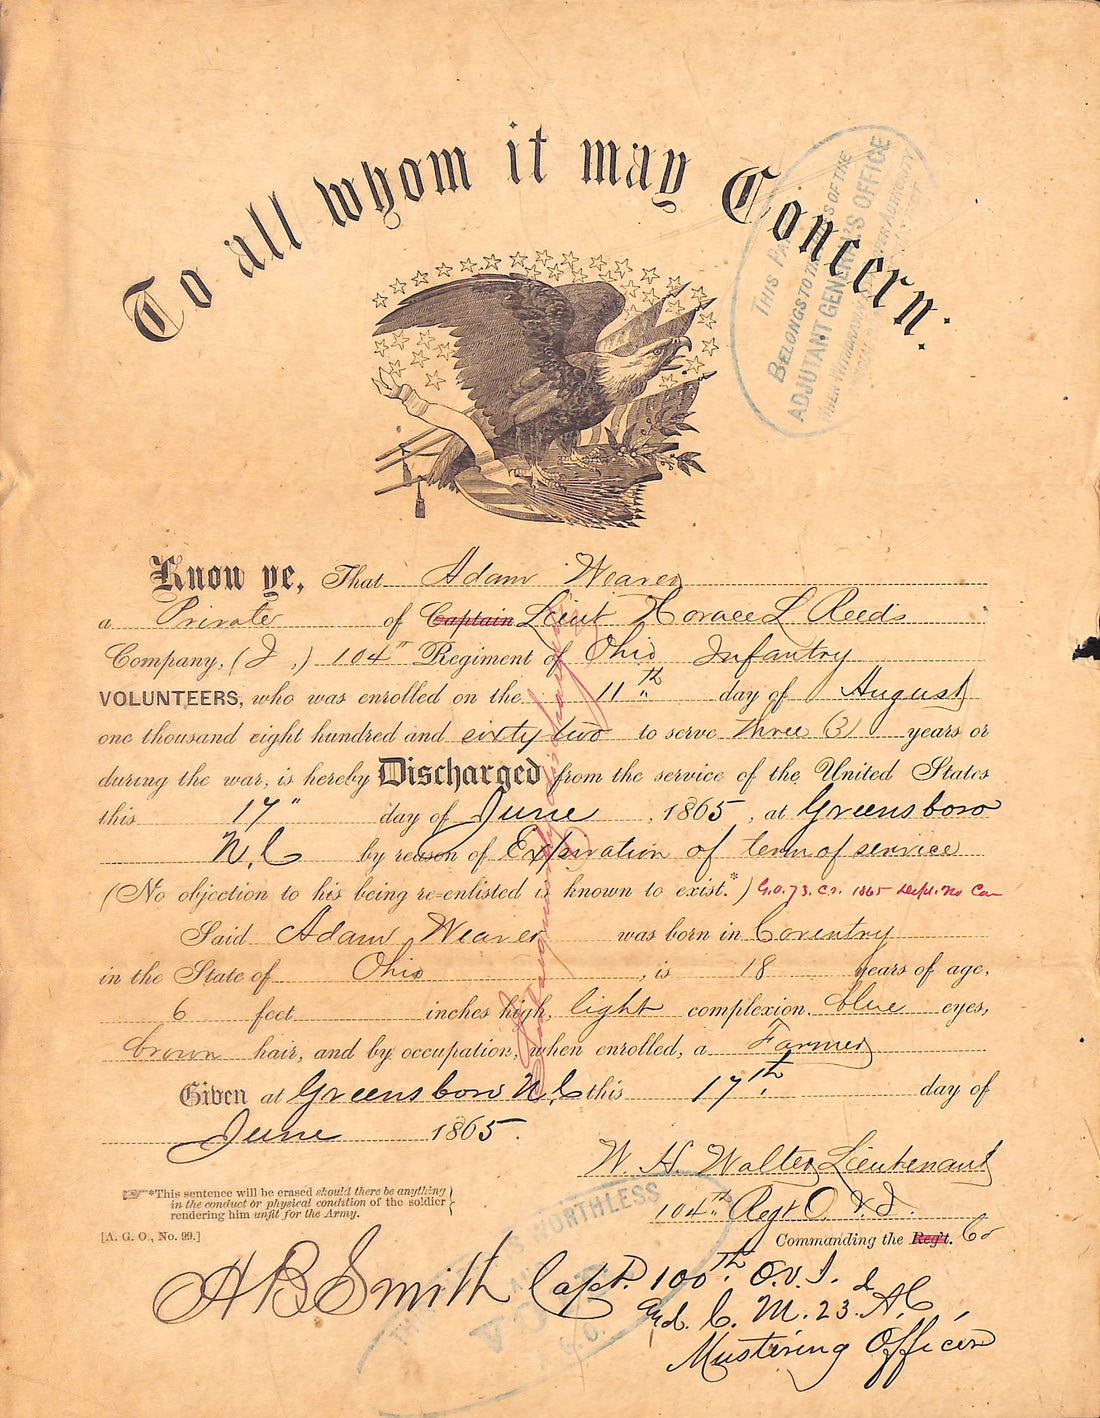 To all whom it may Concern:
THIS
BELONGS TO THE S OF THE
ADJUTANT GENERAL'S OFFICE
Know ye, That Adam Weaver
a Private of Captain Lieut Horace L Reeds
Company, (I,) 104" Regiment of Ohio Infantry
VOLUNTEERS, who was enrolled on the 11th day of August
one thousand eight hundred and sixty two to serve Three (3) years or
during the war, is hereby Discharged from the service of the United States
this 17" day of June, 1865, at Greensboro
N.C by reason of Expiration of term of service
(No objection to his being re-enlisted is known to exist.*) G.O. 73. C.S. 1865 Dept. No Car
Said Adam Weaver was born in Coventry
in the State of Ohio, is 18 years of age,
6 feet inches high, light complexion, blue eyes,
brown hair, and by occupation, when enrolled, a Farmer
Given at Greensboro N.C this 17th day of
June 1865.
W. H. Walter Lieutenant
104th Regt O.V.I.
Commanding the Reg't. Co
*This sentence will be erased should there be anything
in the conduct or physical condition of the soldier
rendering him unfit for the Army.
[A. G. O., No. 99.]
WORTHLESS
A B Smith Capt. 100th O.V.I. &
C. M. 23. A.C.
Mustering Officer